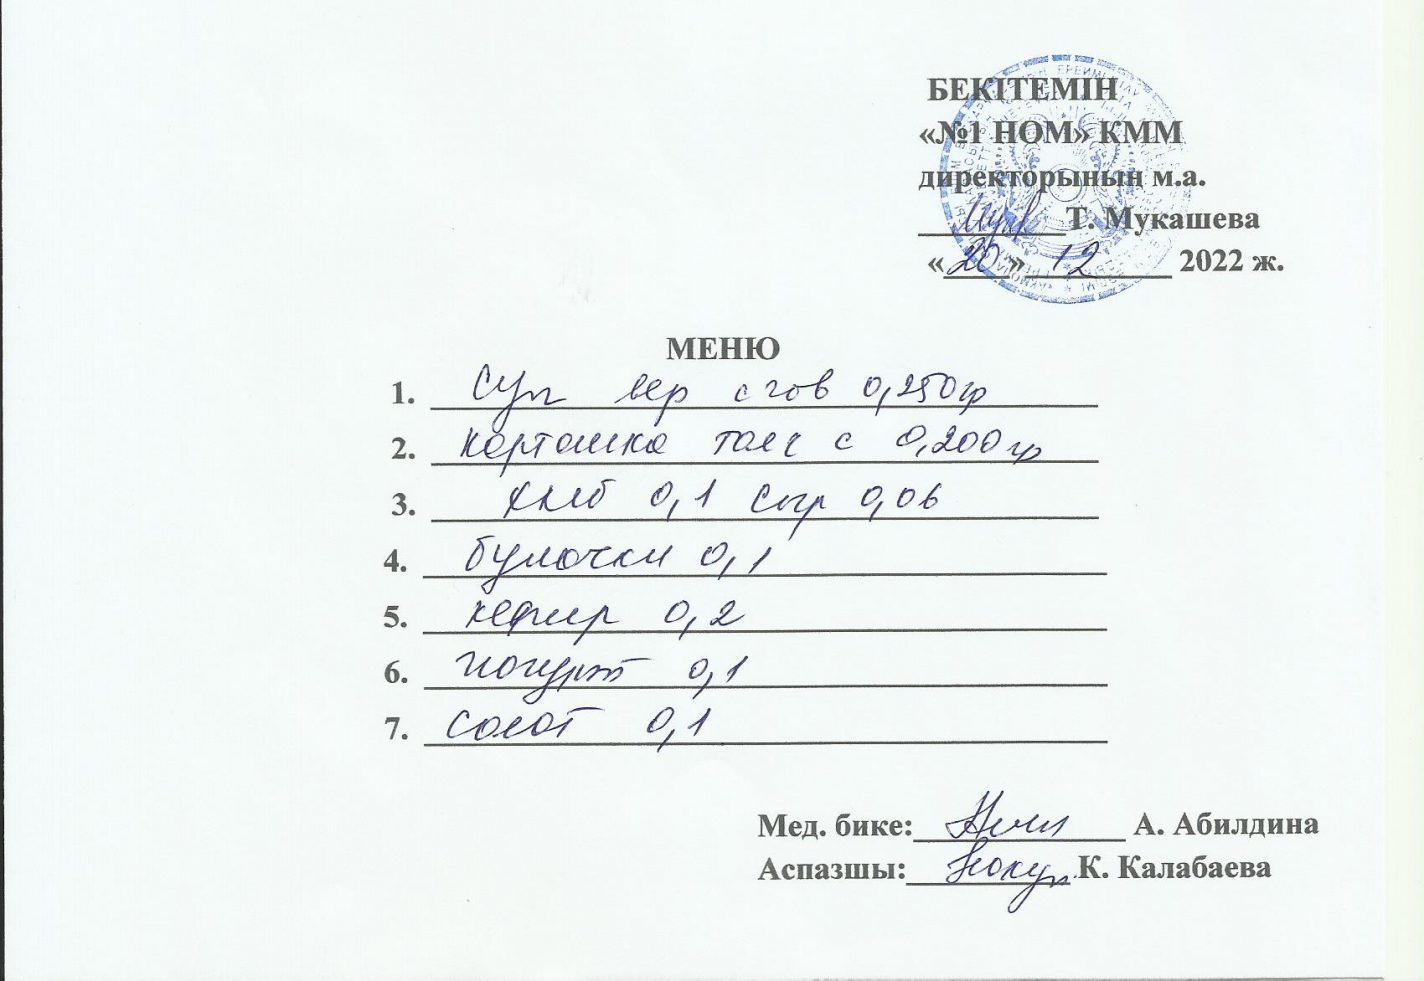 БЕКІТЕМІН
«№1 НОМ» КММ
директорының м.а.
Т. Мукашева
«20» 12 2022 ж.
МЕНЮ
1. Суп вер с гов 0,250гр
2. картошка с 0,200гр
3. хлеб 0,1 сыр 0,06
4. булочки 0,1
5. кефир 0,2
6. йогурт 0,1
7. салат 0,1
Мед. бике: А. Абилдина
Аспазшы: К. Калабаева